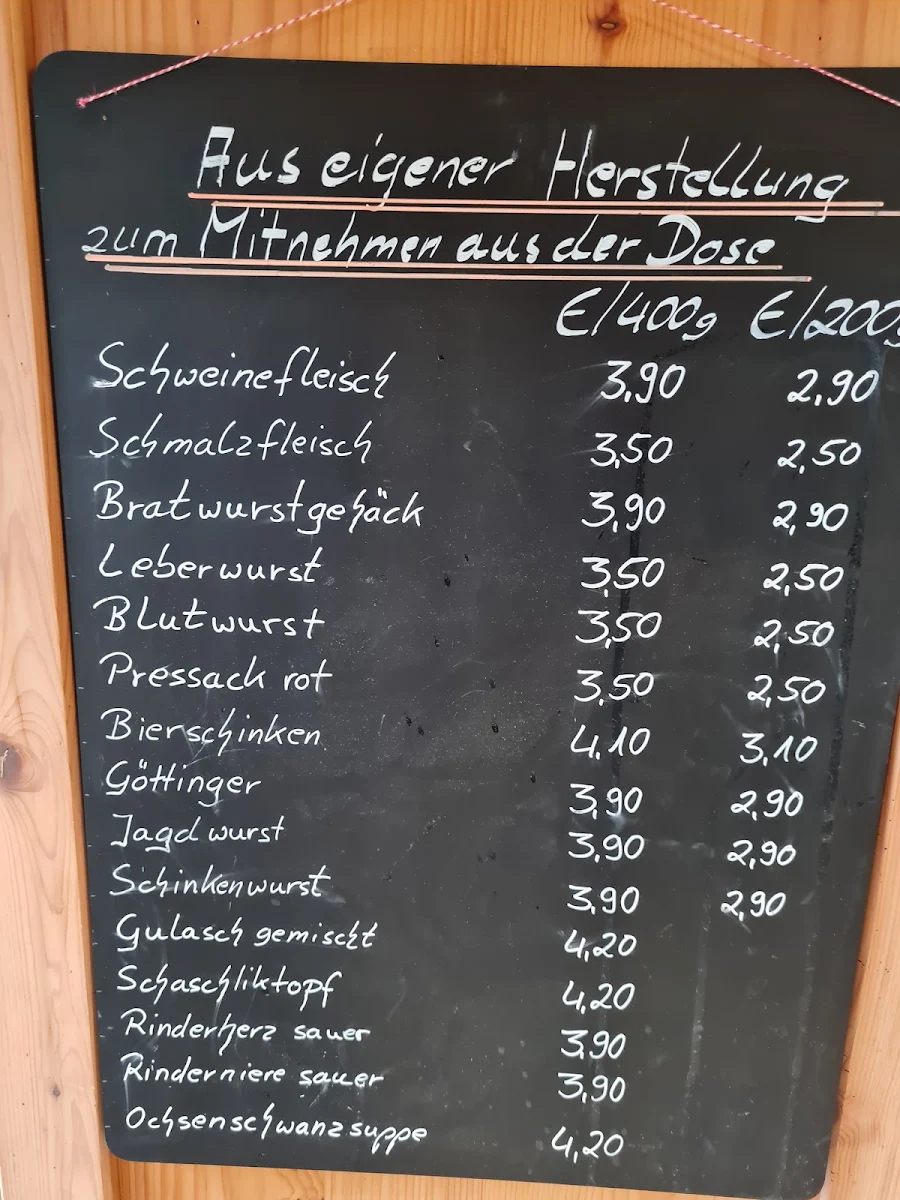 Aus eigener Herstellung
zum Mitnehmen aus der Dose
€/400g €/200g
Schweinefleisch 3,90 2,90
Schmalzfleisch 3,50 2,50
Bratwurstgehäck 3,90 2,90
Leberwurst 3,50 2,50
Blutwurst 3,50 2,50
Pressack rot 3,50 2,50
Bierschinken 4.10 3,10
Göttinger 3,90 2,90
Jagdwurst 3,90 2,90
Schinkenwurst 3,90 2,90
Gulasch gemischt 4,20
Schaschliktopf 4,20
Rinderherz sauer 3,90
Rinderniere sauer 3,90
Ochsenschwanzsuppe 4,20